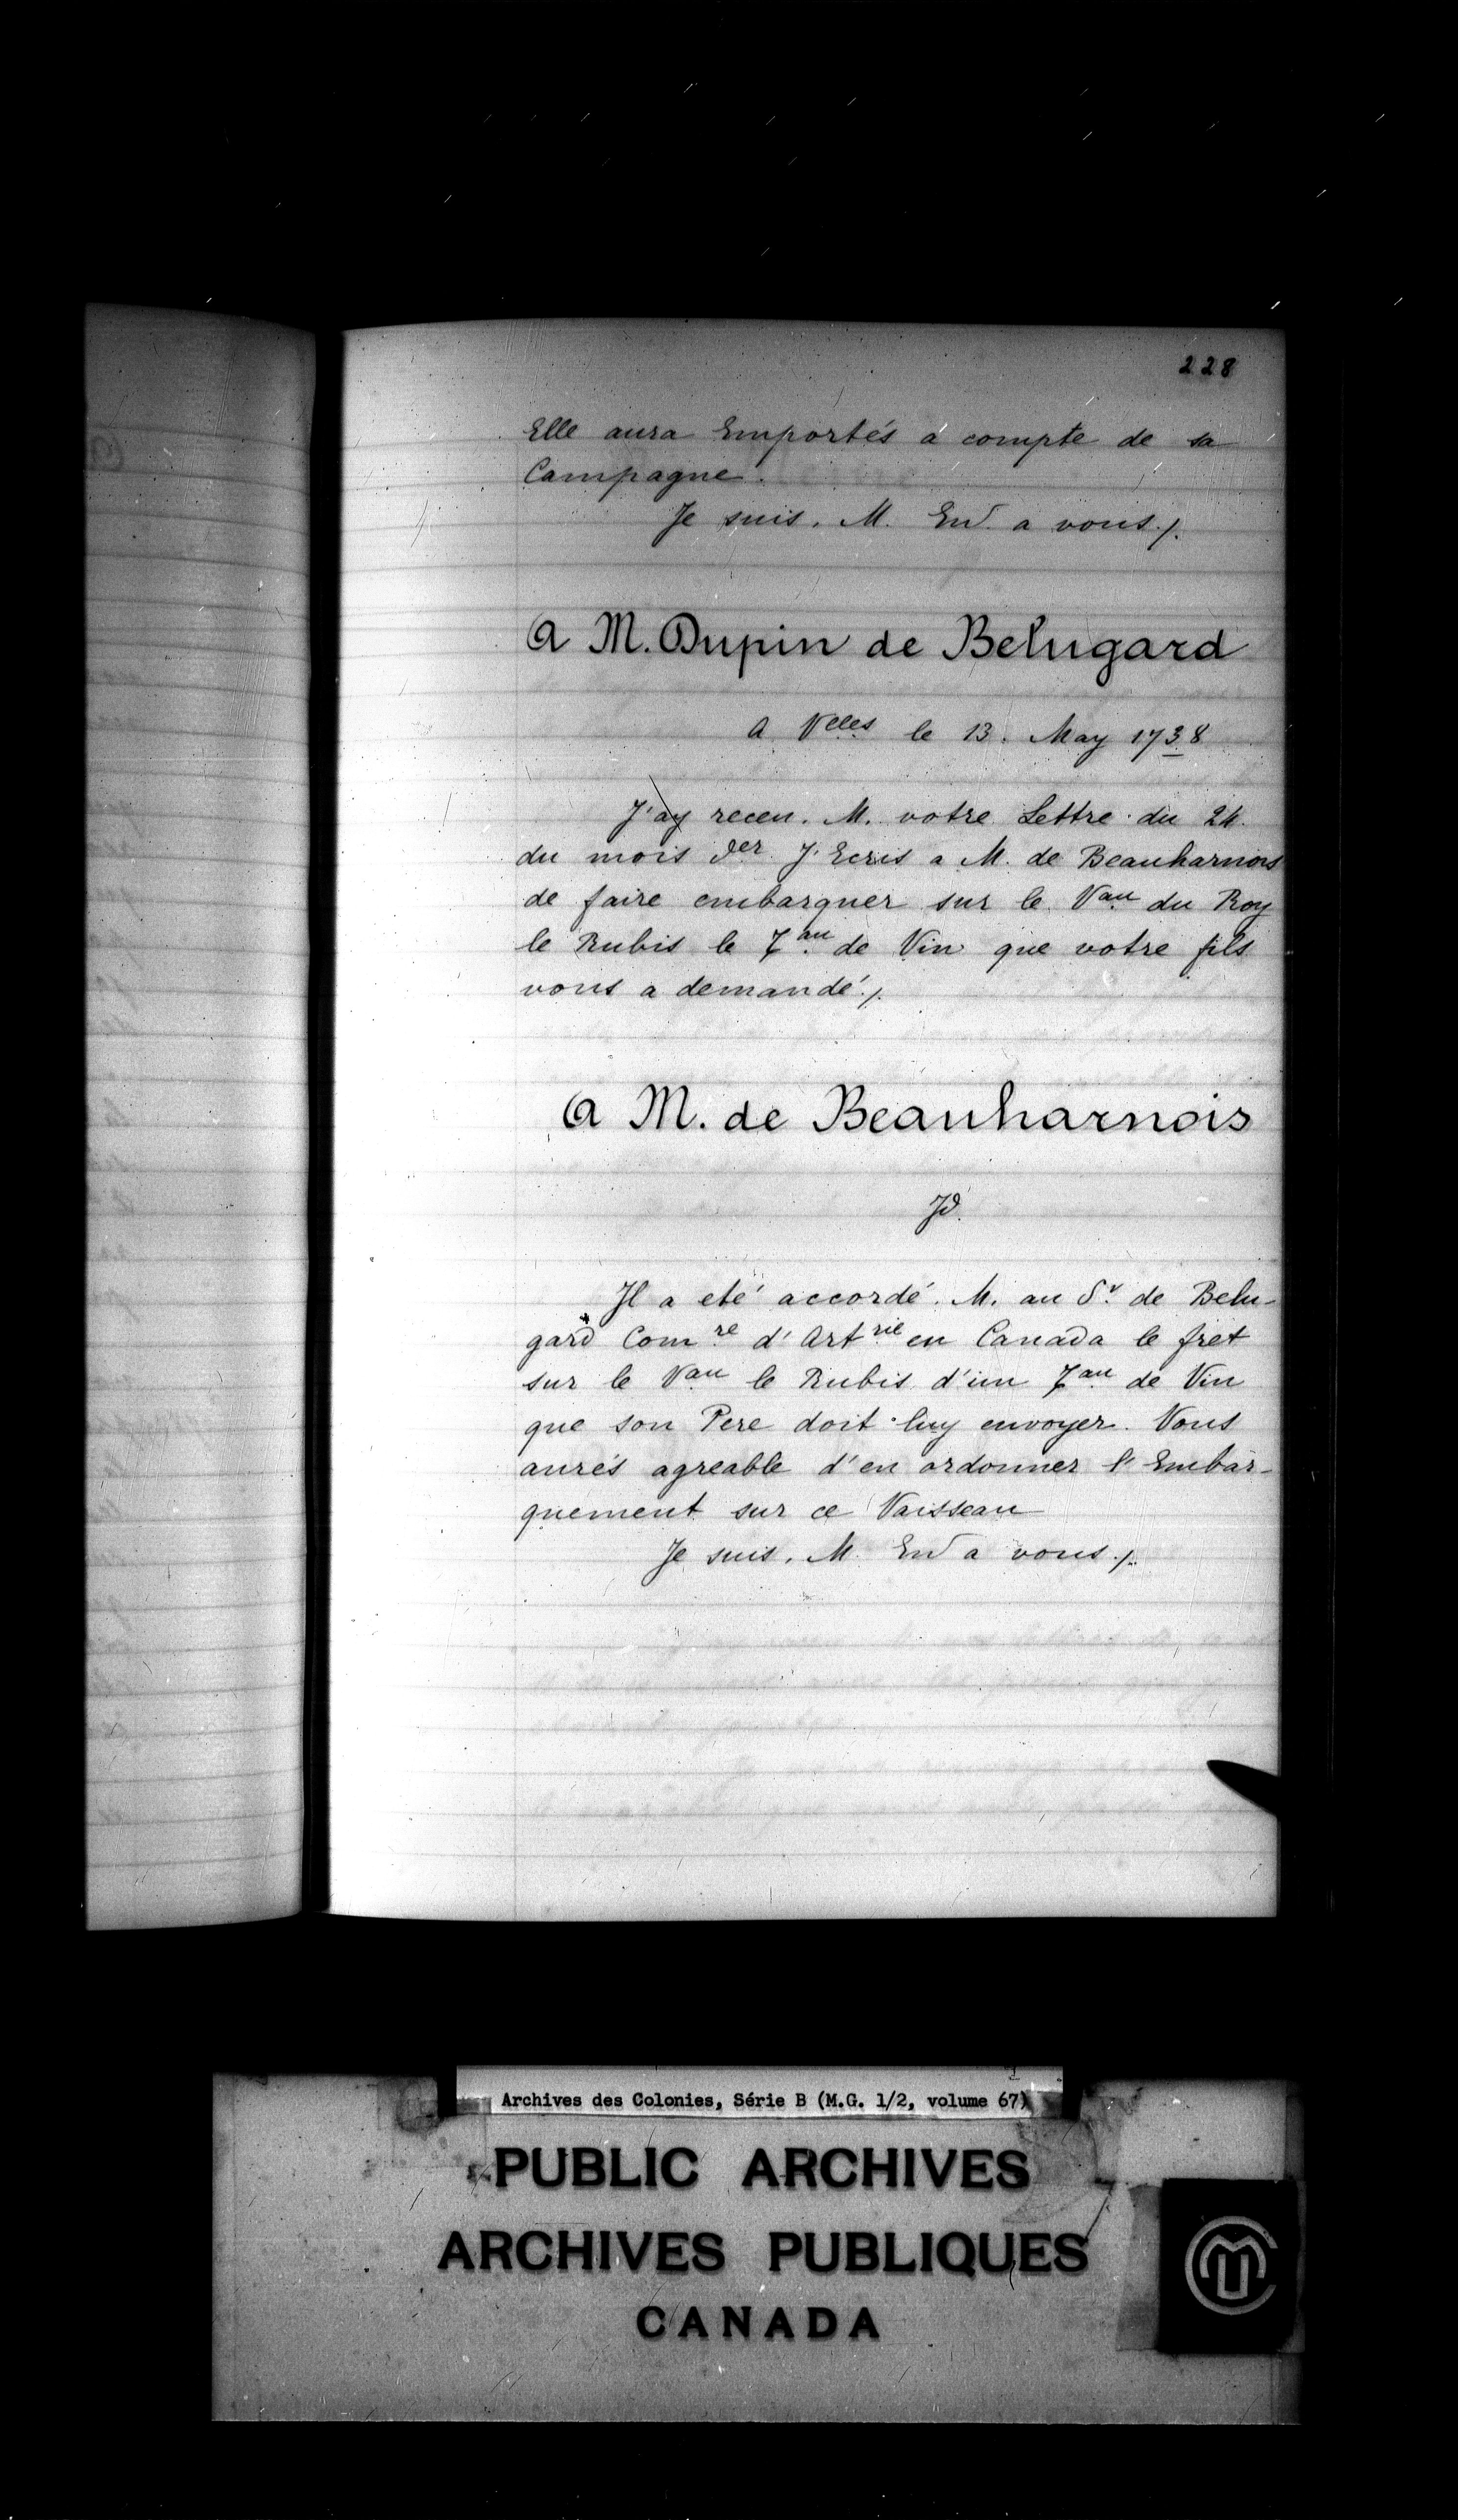 228
Elle aura Emportés a compte de sa
Campagne.
Je suis. M. End. a vous ./.
A M. Dupin de Belugard
A Velles le 13. May 1738
J'ay receu. M. votre Lettre du 24.
du mois der J'Ecris a M. de Beauharnois
de faire embarquer sur le Vau du Roy
le Rubis le Tau de Vin que votre fils
vous a demandé ./.
A M. de Beauharnois
Jd.
Il a eté accordé. M. au Sr. de Belu-
gard Comre d'Artrie en Canada le fret
sur le Vau le Rubis d'un Tau de Vin
que son Pere doit luy envoyer. Vous
aurés agreable d'en ordonner l'Embar-
quement sur ce Vaisseau
Je suis. M. End a vous ./.
Archives des Colonies, Série B (M.G. 1/2, volume 67)
PUBLIC ARCHIVES
ARCHIVES PUBLIQUES
CANADA